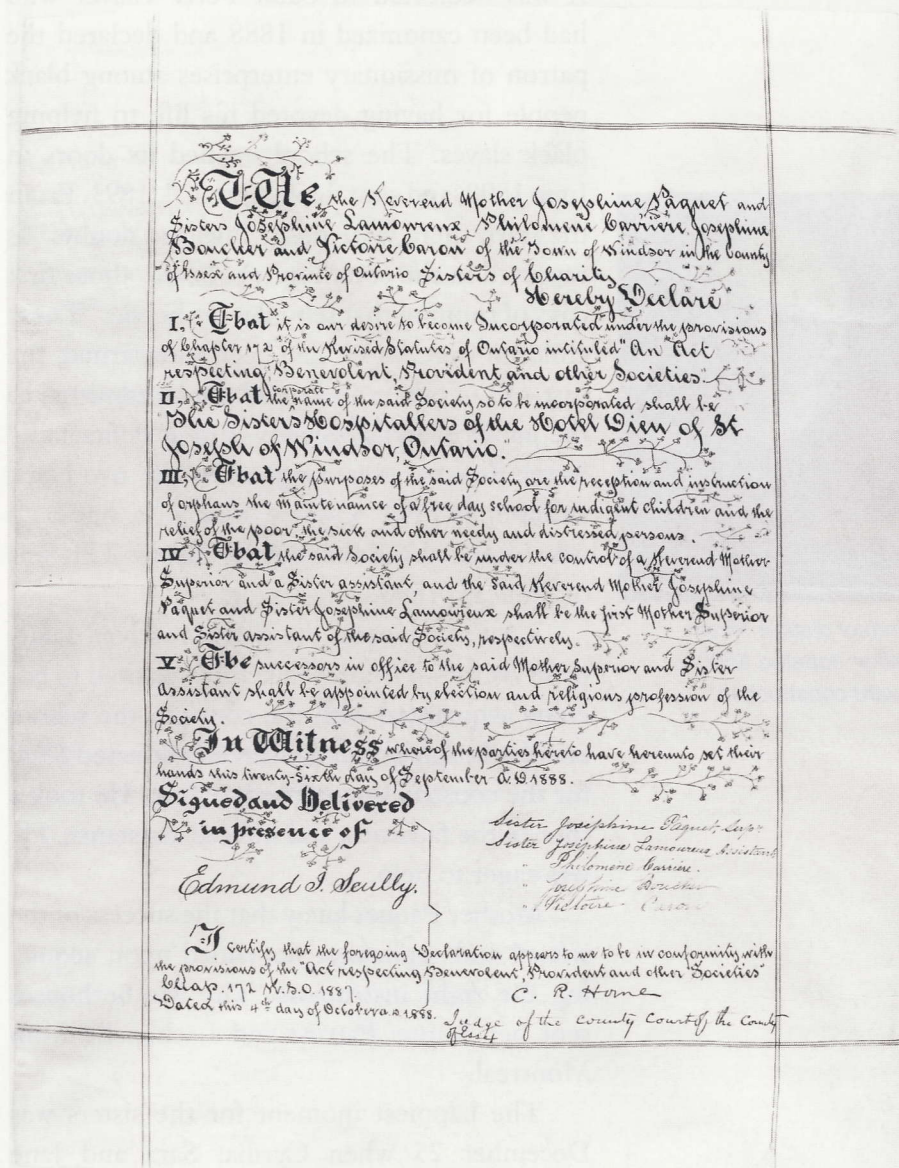 We, the Reverend Mother Josephine Paquet and
Sisters Josephine Lamoureux, Philomene Carriere, Josephine
Boucher and Victoire Caron of the Town of Windsor in the County
of Essex and Province of Ontario Sisters of Charity
Hereby Declare
I. That it is our desire to become Incorporated under the provisions
of Chapter 172 of the Revised Statutes of Ontario intituled "An Act
respecting Benevolent, Provident and other Societies"
II. That the corporate name of the said Society so to be incorporated shall be
"The Sisters Hospitallers of the Hotel Dieu of St
Joseph of Windsor, Ontario."
III. That the purposes of the said Society are the reception and instruction
of orphans the maintenance of a free day school for indigent children and the
relief of the poor, the sick and other needy and distressed persons.
IV. That the said Society shall be under the control of a Reverend Mother
Superior and a Sister assistant, and the said Reverend Mother Josephine
Paquet and Sister Josephine Lamoureux shall be the first Mother Superior
and Sister assistant of the said Society, respectively.
V. The successors in office to the said Mother Superior and Sister
Assistant shall be appointed by election and religious profession of the
Society.
In Witness whereof the parties hereto have hereunto set their
hands this twenty-sixth day of September A.D. 1888.
Signed and Delivered
in presence of
Edmund J. Scully.
Sister Joséphine Pâquet, Supr
Sister Joséphine Lamoureux Assistent
" Philomène Carrière.
" Joséphine Boucher
" Victoire Caron
I certify that the foregoing Declaration appears to me to be in conformity with
the provisions of the "Act respecting Benevolent, Provident and other Societies"
Chap. 172 R.S.O. 1887.
Dated this 4th day of October A.D. 1888.
C. R. Horne
Judge of the County Court of the County
of Essex